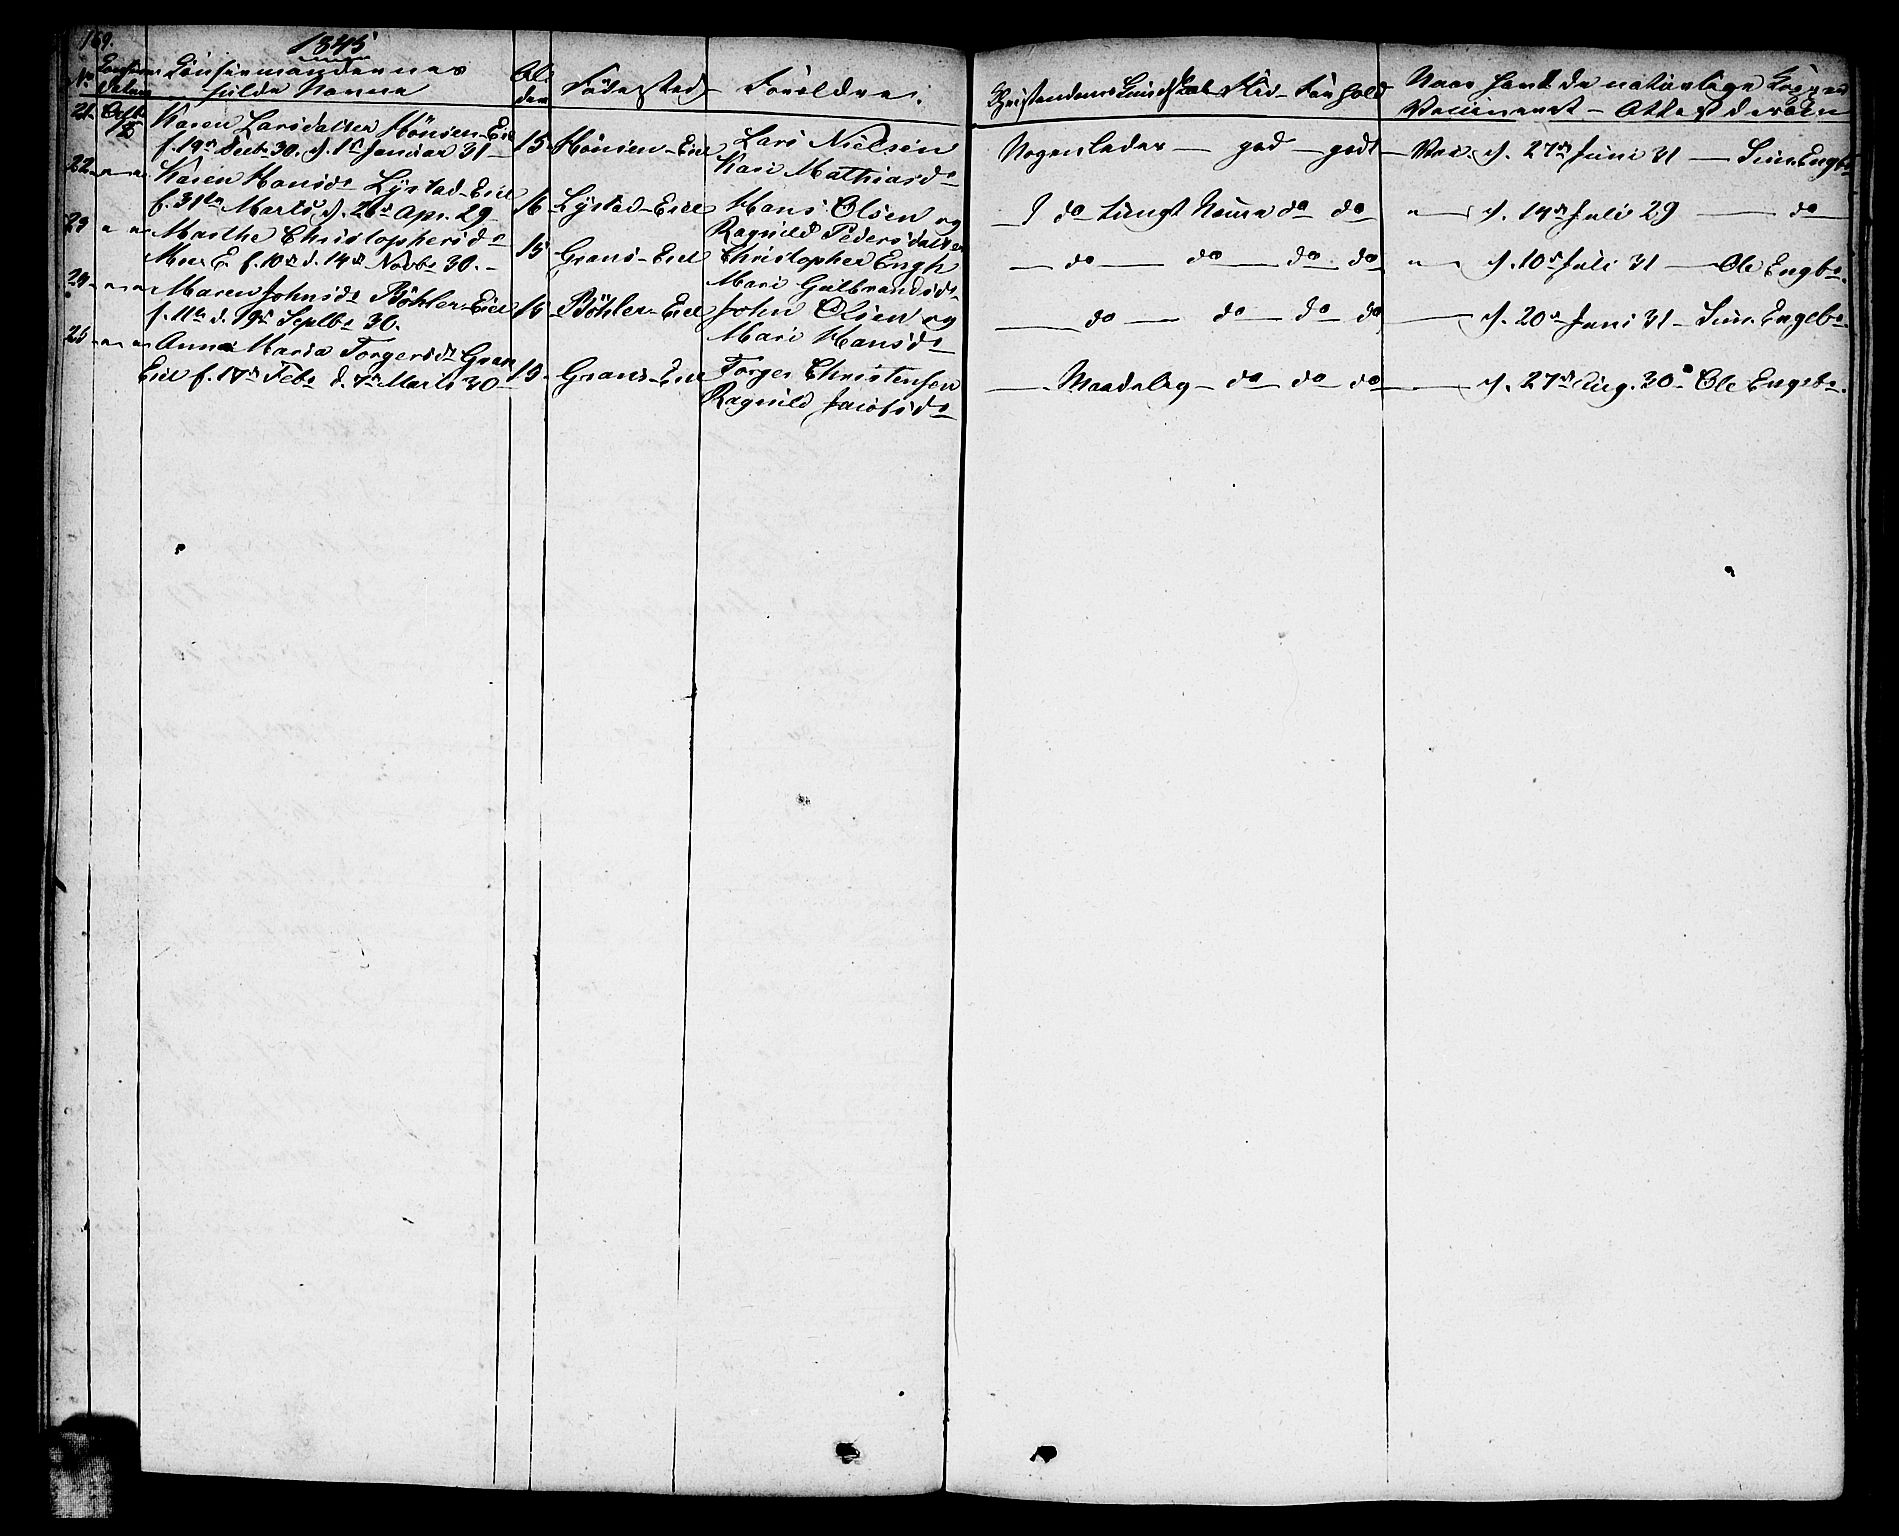 169.
1845
No Confirm. Datum Confirmandernes fulde Navne Alder Födested Forældre. Christendoms Kundskab Flid Forhold Naar havt de naturlige Kopper
Vaccineret – Attest derom
21. Octbr 12 Karen Larsdatter Hönsen-Eie
f. 19de Decbr 30. d. 1ste Januar 31 – 15 Hönsen-Eie Lars Nielsen
Kari Mathiasdr Nogenledes – god – godt – Vac. d. 27de Juni 31 – Sim. Engebr
22 – " – " Karen Hansdr Lystad-Eie
f. 31te Marts d. 26de Apr. 29 16 Lystad-Eie Hans Olsen og
Ragnild Pedersdatter I do tungt Nemme do do – " – d. 14de Juli 29 – do
23 " " Marthe Christophersdr
E. f. 10de d. 14de Novbr 30. – 15 Grans-Eie Christopher Engh
Mari Gulbrandsdr – do – do – do do " – d. 10de Juli 31 – Ole Engebr.
24 – " – " Maren Johnsdr Böhler-Eie
f. 11te d. 19de Septbr 30. 15 Böhler-Eie John Olsen og
Mari Hansdr – do – do – do do – d. 20de Juni 31 – Sim. Engebr
25 – " – " Anna Maria Torgersdr Gran
Eie f. 17de Febr d. 7de Marts 30 – 15 Grans-Eie Torger Christensen
Ragnild Jacobsdr – Maadelig – do – do do – d. 27de Aug. 30 – Ole Engebr.